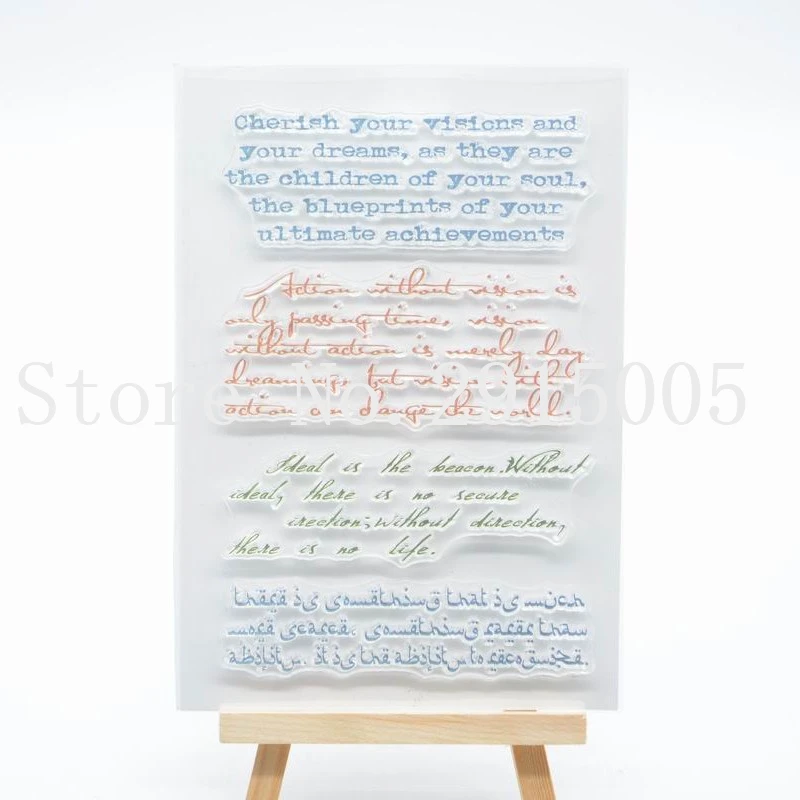 Cherish your visions and
your dreams, as they are
the children of your soul,
the blueprints of your
ultimate achievements
Action without vision is
only passing time, vision
without action is merely day
dreaming, but vision with
action can change the world.
Ideal is the beacon. Without
ideal, there is no secure
irection; without direction,
there is no life.
there is something that is much
more scarce. something rarer than
ability. it is the ability to recognize.
Store No: 2915005